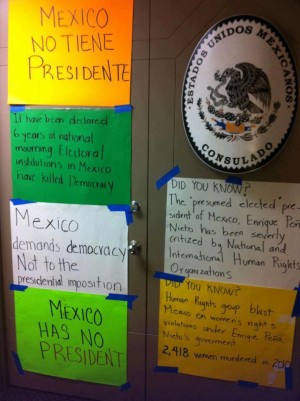 MEXICO
NO TIENE
PRESIDENTE
It have been declared
6 years of national
mourning. Electoral
institutions in Mexico
have killed Democracy
Mexico
demands democracy
Not to the
presidential imposition
MEXICO
HAS NO
PRESIDENT
ESTADOS UNIDOS MEXICANOS
CONSULADO
DID YOU KNOW?
The "presumed elected" pre-
sident of Mexico, Enrique Peña
Nieto has been severly
critized by National and
International Human Rights
Organizations
DID YOU KNOW?
Human Rights goup blast
Mexico on women's rights
violations under Enrique Peña
Nieto's government
2,418 women murdered in